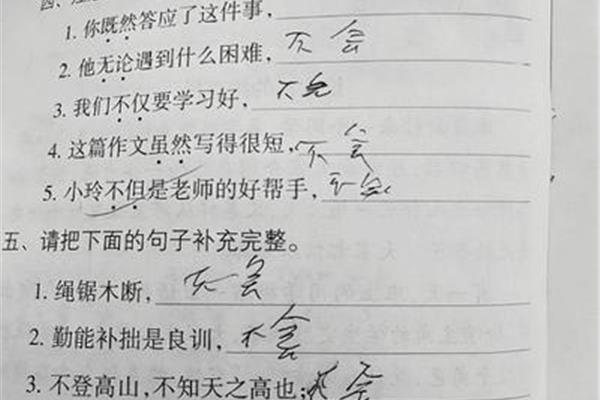 1. 你既然答应了这件事，
2. 他无论遇到什么困难，不会
3. 我们不仅要学习好，不会
4. 这篇作文虽然写得很短，不会
5. 小玲不但是老师的好帮手，不会
五、请把下面的句子补充完整。
1. 绳锯木断，不会
2. 勤能补拙是良训，不会
3. 不登高山，不知天之高也；不会